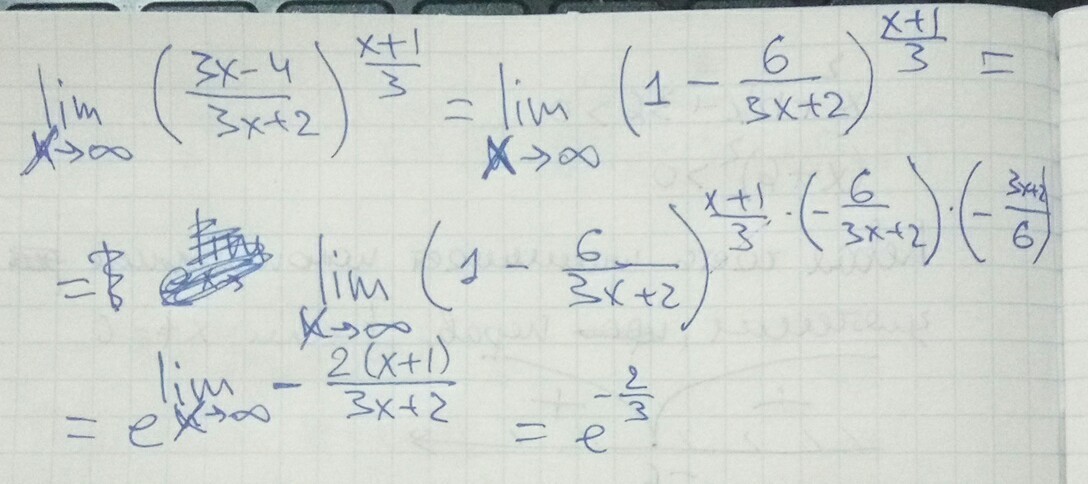 lim x→∞ ((3x-4)/(3x+2))^((x+1)/3) = lim x→∞ (1 - 6/(3x+2))^((x+1)/3) =
= lim x→∞ (1 - 6/(3x+2))^((x+1)/3 · (-6/(3x+2)) · (-(3x+2)/6))
= e^(lim x→∞ - 2(x+1)/(3x+2)) = e^(-2/3)